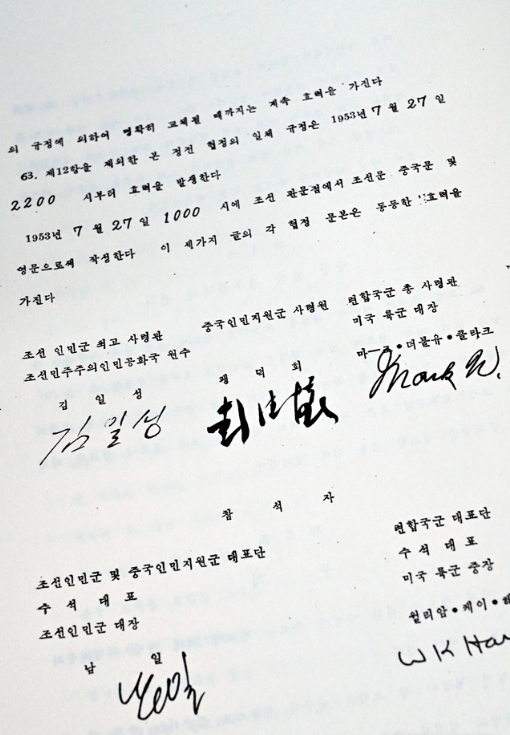 의 규정에 의하여 명확히 교체될 때까지는 계속 효력을 가진다
63. 제12항을 제외한 본 정전 협정의 일체 규정은 1953년 7 월 27 일
2200 시부터 효력을 발생한다
1953년 7 월 27 일 1000 시에 조선 판문점에서 조선문 중국문 및
영문으로써 작성한다 이 세가지 글의 각 협정 문본은 동등한 효력을
가진다
조선 인민군 최고 사령관
조선민주주의인민공화국 원수
김 일 성
김일성
중국인민지원군 사령원
팽 덕 회
彭德懷
련합국군 총 사령관
미국 륙군 대장
마크·더블유·클라크
Mark W.
참 석 자
조선인민군 및 중국인민지원군 대표단
수 석 대 표
조선인민군 대장
남 일
남일
련합국군 대표단
수 석 대 표
미국 륙군 중장
윌리암·케이·해
W K Har